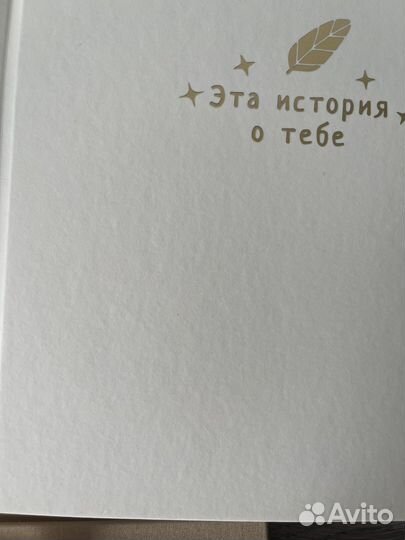 Эта история
о тебе
Avito